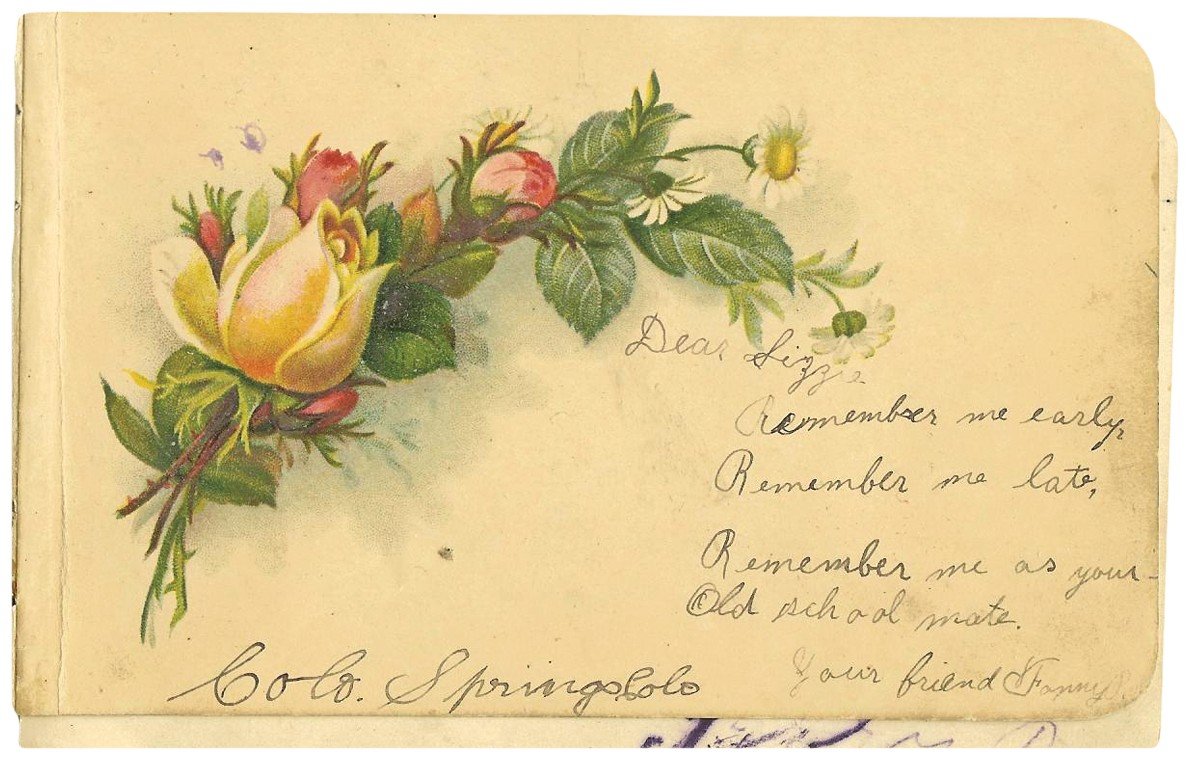 Dear Lizzie
Remember me early,
Remember me late,
Remember me as your-
Old school mate.
Your friend Fanny
Colo. Springs, Colo